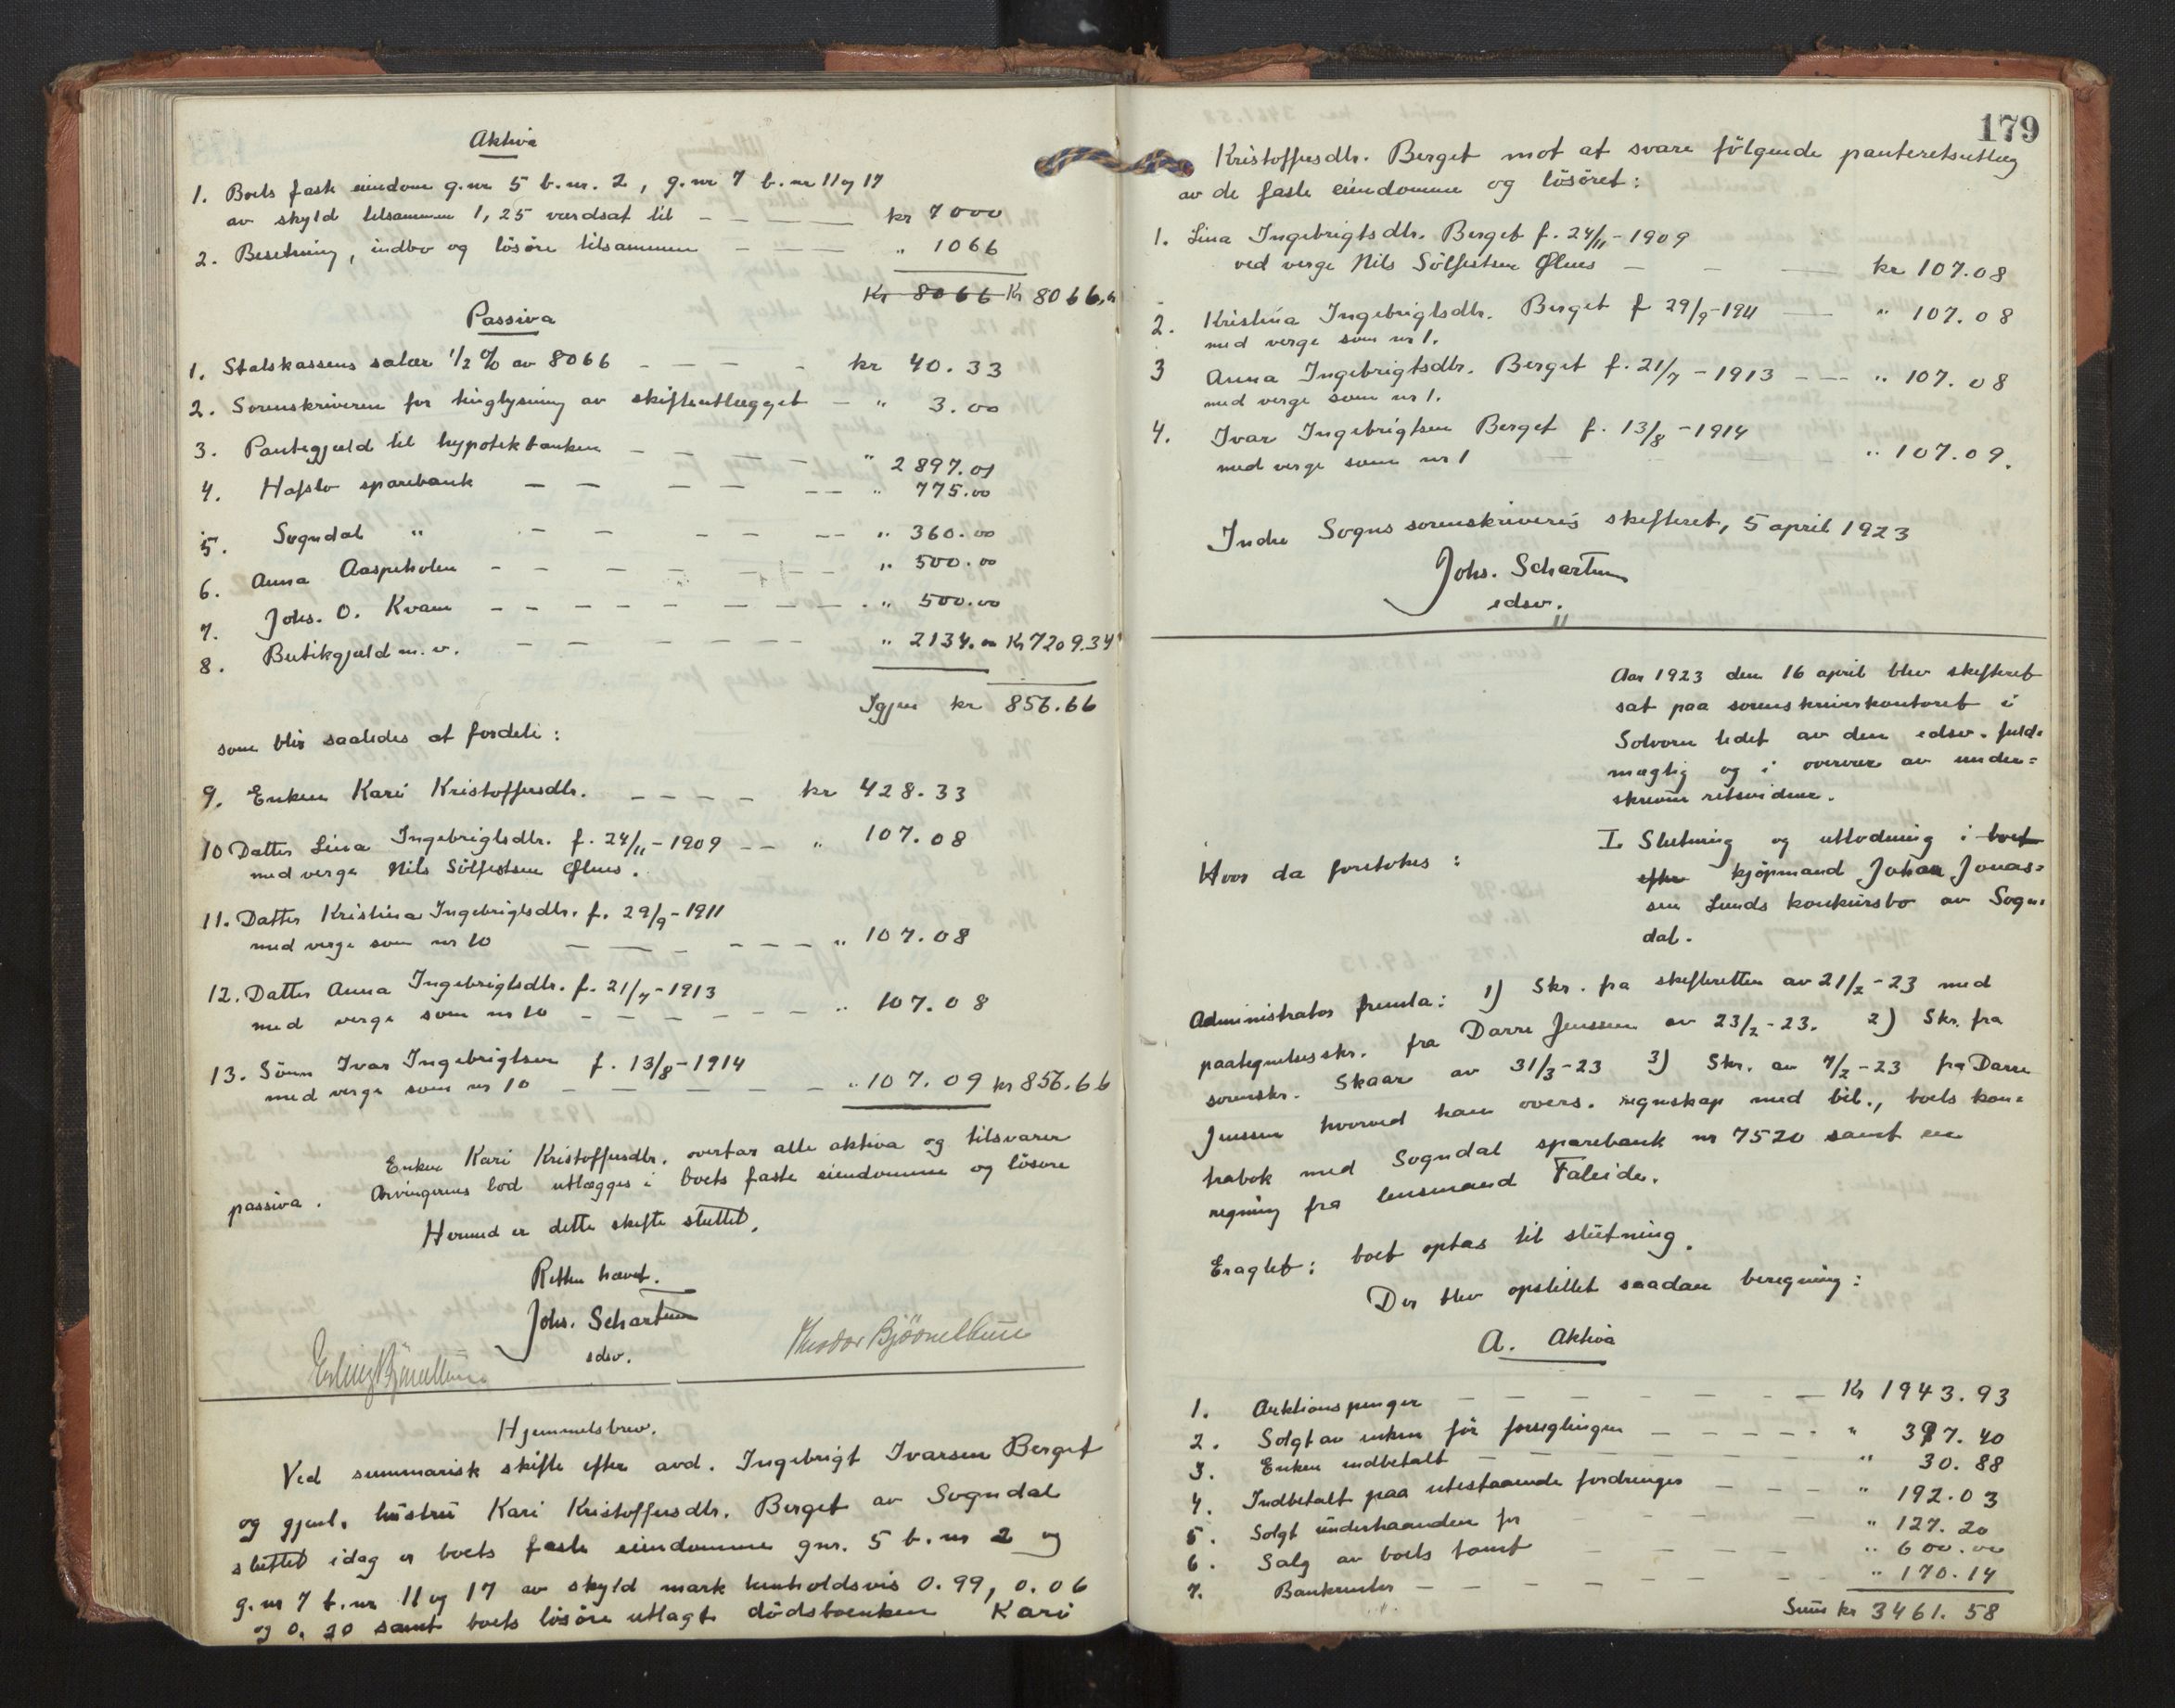 Aktiva
1. Boets faste eiendom g.nr 5 b.nr. 2, g.nr 7 b.nr 11 og 17
av skyld tilsammen 1,25 værdsat til — — — kr 7000
2. Besetning, indbo og lösöre tilsammen — — — " 1066
Kr 8066 Kr 8066,
Passiva
1. Statskassens salær 1/2 % av 8066 — — — - kr 40.33
2. Sorenskriveren for tinglysning av skifteutlægget — " 3.00
3. Pantegjæld til hypotekbanken — — — — " 2897.01
4. Hafslo sparebank — — — — -- " 775.00
5. Sogndal " - — — — -- " 360.00
6. Anna Aaspeholen - — — — — " 500.00
7. Johs. O. Kvam — — — — — — — " 500.00
8. Butikgjæld m.v. — — — — — " 2134.00 Kr 7209.34
Igjen kr 856.66
som blir saaledes at fordele:
9. Enken Kari Kristoffersdtr. — — — — kr 428.33
10 Datter Lina Ingebrigtsdtr. f. 24/11-1909 -- " 107.08
med verge Nils Sölfestsen Ølnes.
11. Datter Kristina Ingebrigtsdtr. f. 29/9-1911
med verge som nr 10 — — — — — " 107.08
12. Datter Anna Ingebrigtsdtr. f. 21/7-1913
med verge som nr 10 — — — — — — " 107.08
13. Sönn Ivar Ingebrigtsen f. 13/8-1914
med verge som nr 10 — — — — — — " 107.09 kr 856.66
Enken Kari Kristoffersdtr. overtar alle aktiva og tilsvarer
passiva. Arvingernes lod utlægges i boets faste eiendomme og lösöre
Hermed er dette skifte sluttet.
Retten hævet.
Johs. Schartum
edsv.
Erling Bjørnethun
Theodor Bjöørnethun
Hjemmelsbrev.
Ved summarisk skifte efter avd. Ingebrigt Ivarsen Berget
og gjenl. hustru Kari Kristoffersdtr. Berget av Sogndal
sluttet idag er boets faste eiendomme gnr. 5 b.nr 2 og
g.nr 7 b.nr 11 og 17 av skyld mark henholdsvis 0.99, 0.06
og 0.20 samt boets lösöre utlagt dödsboenken Kari
179
Kristoffersdtr. Berget mot at svare fölgende panteretsutlæg
av de faste eiendomme og lösöret:
1. Lina Ingebrigtsdtr. Berget f. 24/11-1909
ved verge Nils Sölfestsen Ølnes — - — kr 107.08
2. Kristina Ingebrigtsdtr. Berget f 29/9-1911 — " 107.08
med verge som nr 1.
3 Anna Ingebrigtsdtr. Berget f. 21/7-1913 — — " 107.08
med verge som nr 1.
4. Ivar Ingebrigtsen Berget f. 13/8-1914
med verge som nr 1 — — — " 107.09.
Indre Sogns sorenskriveris skifteret, 5 april 1923
Johs. Schartum
edsv.
Aar 1923 den 16 april blev skifteret
sat paa sorenskriverkontoret i
Solvorn ledet av den edsv. fuld-
mægtig og i overvær av under-
skrevne retsvidner.
Hvor da foretokes:
I. Slutning og utlodning i boet
efter kjöpmand Johan Jonas-
sen Lunds konkursbo av Sogn-
dal.
Administrator fremla: 1) Skr. fra skifteretten av 21/2-23 med
paategnelsesskr. fra Darre Jenssen av 23/2-23. 2) Skr. fra
sorenskr. Skaar av 31/3-23 3) Skr. av 7/2-23 fra Darre
Jenssen hvorved han overs. regnskap med bil., boets kon-
trabok med Sogndal sparebank nr 7520 samt en
regning fra lensmand Faleide.
Eragtet: boet optas til slutning.
Der blev opstillet saadan beregning:
A. Aktiva
1. Auktionspenger — — — — — — Kr 1943.93
2. Solgt av enken för forseglingen — — — — " 397.40
3. Enken indbetalt — — — — — " 30.88
4. Indbetalt paa utestaaende fordringer — — — " 192.03
5. Solgt underhaanden for — — — — " 127.20
6. Salg av boets tomt — — — — " 600.00
7. Bankrenter — — — — — — — " 170.14
Sum kr 3461.58